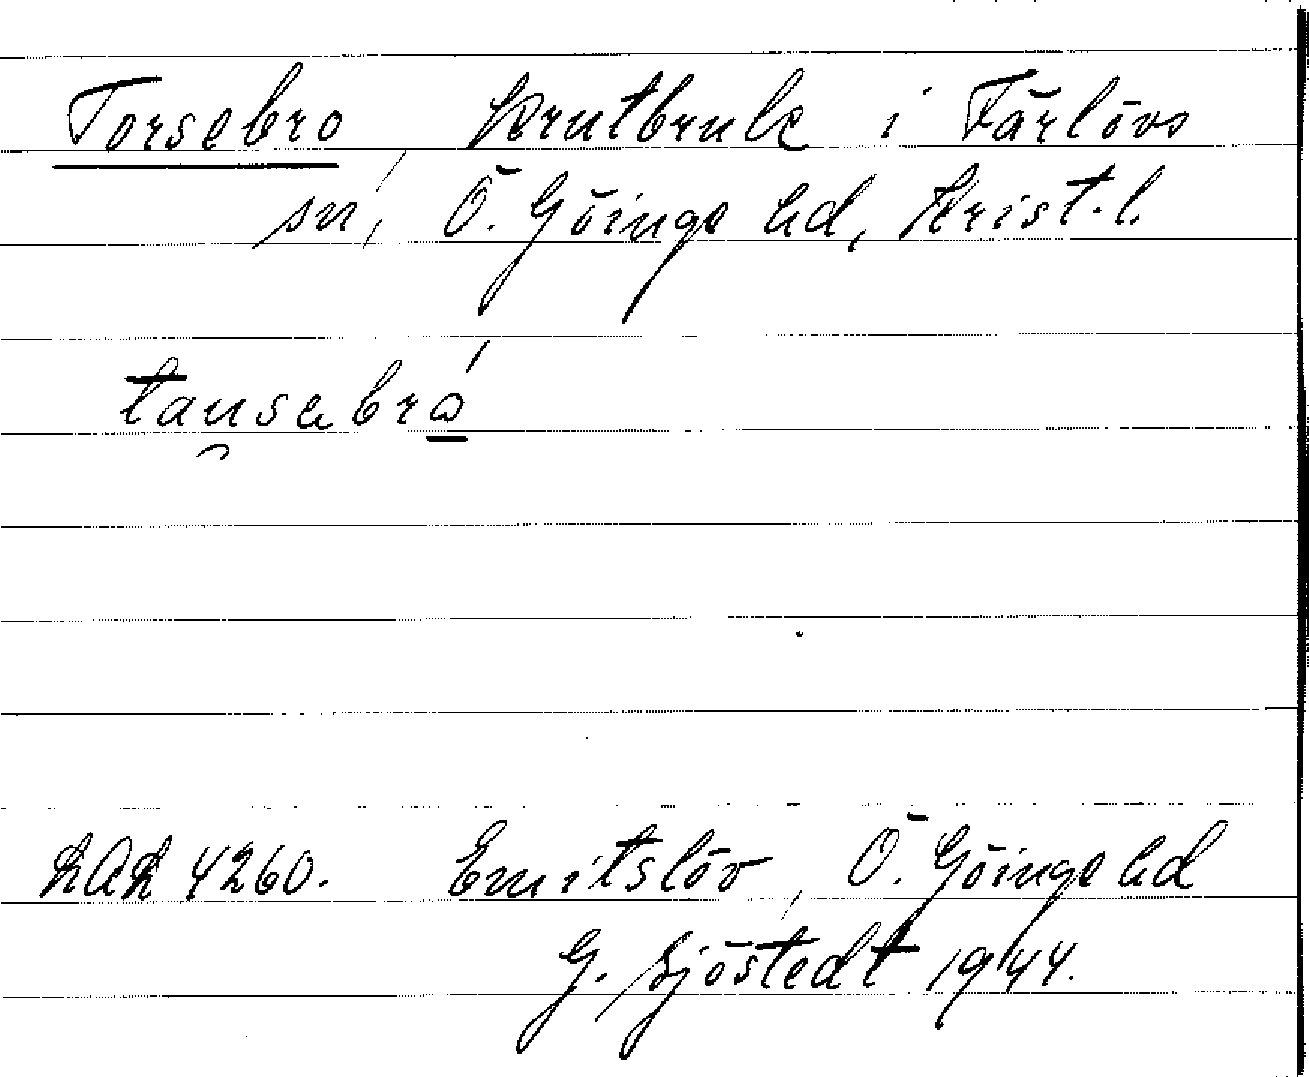 Torsebro Krutbruk i Färlövs
sn, Ö. Göinge hd, Krist. l.
tau̯sabró
LAL 4260. Emitslöv, Ö. Göinge hd
G. Sjöstedt 1944.